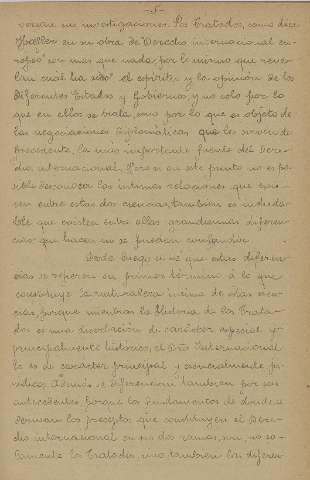 -5-
versan sus investigaciones. Los Tratados, como dice
Heffter en su obra de "Derecho internacional eu-
ropeo" son mas que nada, por lo mismo que reve-
lan cuál ha sido el espíritu y la opinión de los
diferentes Estados y Gobiernos y no solo por lo
que en ellos se trata, sino por lo que es objeto de
las negociaciones diplomáticas que les sirven de
precedente, la más importante fuente del Dere-
cho internacional. Pero si en este punto no es po-
sible desconocer las íntimas relaciones que exis-
ten entre estas dos ciencias, tambien es induda-
ble que existen entre ellas grandísimas diferen-
cias que hacen no se puedan confundir.
Desde luego se ve que estas diferen-
cias se refieren en primer término á lo que
constituye la naturaleza íntima de estas cien-
cias, porque mientras la Historia de los Trata-
dos es una disciplina de carácter especial y
principalmente histórico, el Dro. Internacional
lo es de carácter principal y esencialmente ju-
rídico. Además se diferencian tambien por sus
antecedentes, porque los fundamentos de donde
toman los preceptos que constituyen el Dere-
cho internacional en sus dos ramas, son, no so-
lamente los Tratados sino tambien los diferen-